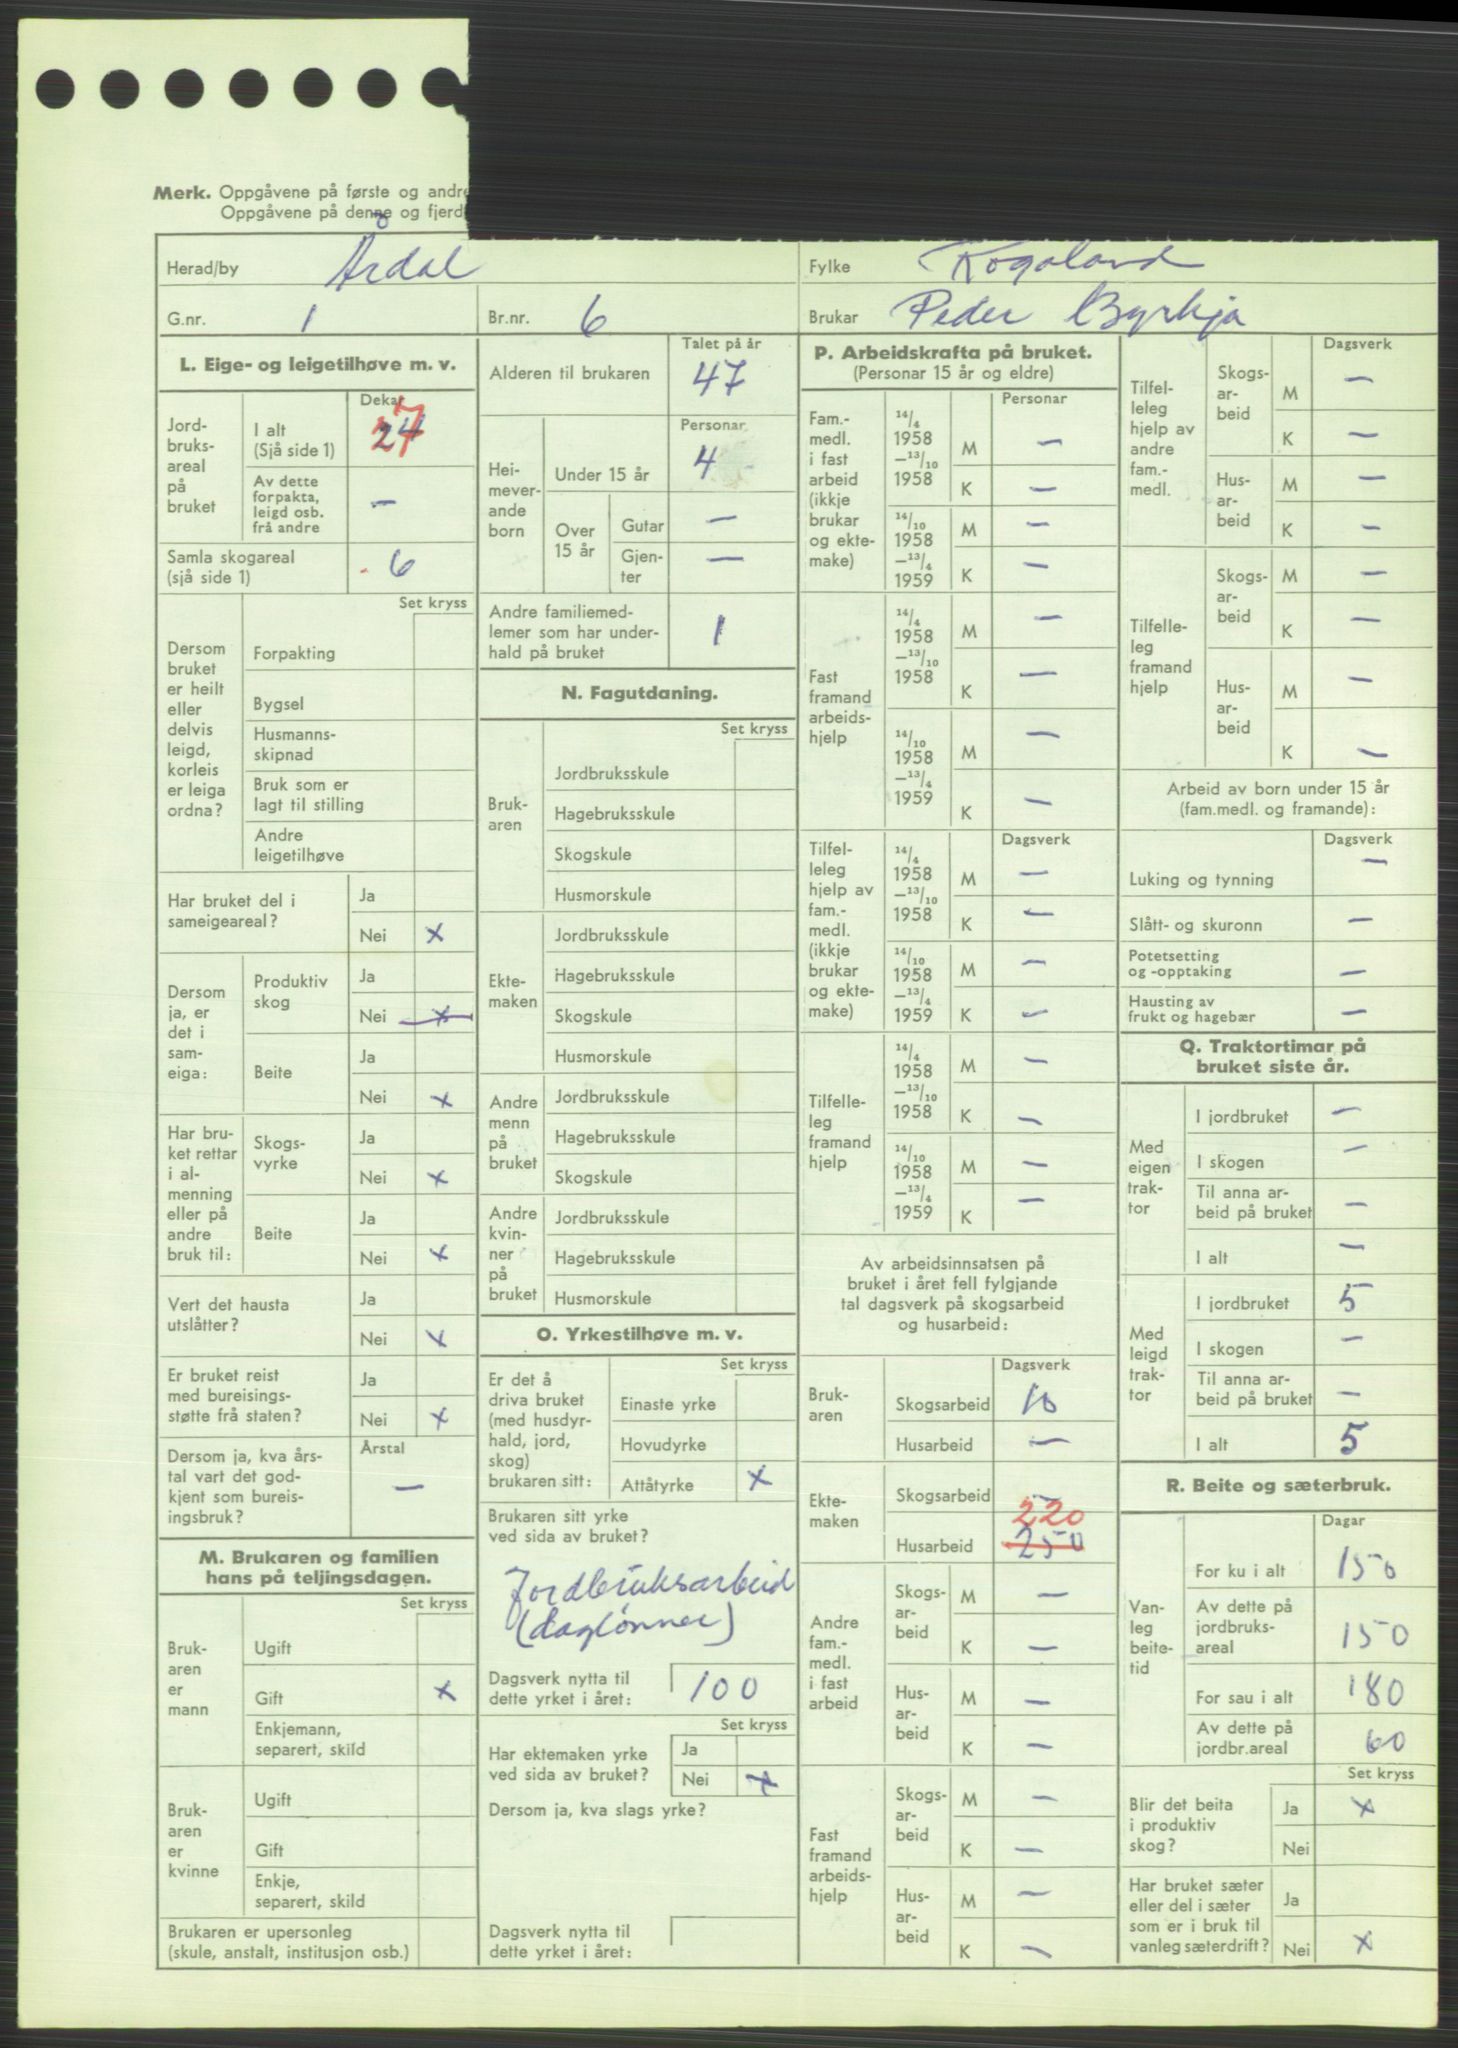 Merk. Oppgåvene på første og andre
Oppgåvene på denne og fjerd
Herad/by Årdal
Fylke Rogaland
G.nr. 1
Br.nr. 6
Brukar Peder Byrkja
L. Eige- og leigetilhøve m. v.
Dekar
Jord-
bruks-
areal
på
bruket
I alt
(Sjå side 1)
24 27
Av dette
forpakta,
leigd osb.
frå andre
–
Samla skogareal
(sjå side 1)
6
Set kryss
Dersom
bruket
er heilt
eller
delvis
leigd,
korleis
er leiga
ordna?
Forpakting
Bygsel
Husmanns-
skipnad
Bruk som er
lagt til stilling
Andre
leigetilhøve
Har bruket del i
sameigeareal?
Ja
Nei x
Dersom
ja, er
det i
sam-
eiga:
Produktiv
skog
Ja
Nei x
Beite
Ja
Nei x
Har bru-
ket rettar
i al-
menning
eller på
andre
bruk til:
Skogs-
vyrke
Ja
Nei x
Beite
Ja
Nei x
Vert det hausta
utslåtter?
Ja
Nei x
Er bruket reist
med bureisings-
støtte frå staten?
Ja
Nei x
Dersom ja, kva års-
tal vart det god-
kjent som bureis-
ingsbruk?
Årstal
–
M. Brukaren og familien
hans på teljingsdagen.
Set kryss
Bruk-
aren
er
mann
Ugift
Gift x
Enkjemann,
separert, skild
Bruk-
aren
er
kvinne
Ugift
Gift
Enkje,
separert, skild
Brukaren er upersonleg
(skule, anstalt, institusjon osb.)
Talet på år
Alderen til brukaren 47
Personar
Hei-
mever-
ande
born
Under 15 år 4
Over
15 år
Gutar –
Gjen-
ter –
Andre familiemed-
lemer som har under-
hald på bruket
1
N. Fagutdaning.
Set kryss
Bruk-
aren
Jordbruksskule
Hagebruksskule
Skogskule
Husmorskule
Ekte-
maken
Jordbruksskule
Hagebruksskule
Skogskule
Husmorskule
Andre
menn
på
bruket
Jordbruksskule
Hagebruksskule
Skogskule
Andre
kvin-
ner
på
bruket
Jordbruksskule
Hagebruksskule
Husmorskule
O. Yrkestilhøve m. v.
Set kryss
Er det å
driva bruket
(med husdyr-
hald, jord,
skog)
brukaren sitt:
Einaste yrke
Hovudyrke
Attåtyrke x
Brukaren sitt yrke
ved sida av bruket?
Jordbruksarbeid
(daglønner)
Dagsverk nytta til
dette yrket i året:
100
Set kryss
Har ektemaken yrke
ved sida av bruket?
Ja
Nei x
Dersom ja, kva slags yrke?
Dagsverk nytta til
dette yrket i året:
P. Arbeidskrafta på bruket.
(Personar 15 år og eldre)
Personar
Fam.-
medl.
i fast
arbeid
(ikkje
brukar
og ekte-
make)
14/4
1958
–13/10
1958
M –
K –
14/10
1958
–13/4
1959
M –
K –
Fast
framand
arbeids-
hjelp
14/4
1958
–13/10
1958
M –
K –
14/10
1958
–13/4
1959
M –
K –
Dagsverk
Tilfel-
leleg
hjelp av
fam.-
medl.
(ikkje
brukar
og ekte-
make)
14/4
1958
–13/10
1958
M –
K –
14/10
1958
–13/4
1959
M –
K –
Tilfelle-
leg
framand
hjelp
14/4
1958
–13/10
1958
M –
K –
14/10
1958
–13/4
1959
M –
K –
Av arbeidsinnsatsen på
bruket i året fell fylgjande
tal dagsverk på skogsarbeid
og husarbeid:
Dagsverk
Bruk-
aren
Skogsarbeid 10
Husarbeid –
Ekte-
maken
Skogsarbeid –
220
Husarbeid 250
Andre
fam.-
medl.
i fast
arbeid
Skogs-
ar-
beid
M –
K –
Hus-
ar-
beid
M –
K –
Fast
framand
arbeids-
hjelp
Skogs-
ar-
beid
M –
K –
Hus-
ar-
beid
M –
K –
Dagsverk
Tilfel-
leleg
hjelp av
andre
fam.-
medl.
Skogs-
ar-
beid
M –
K –
Hus-
ar-
beid
M –
K –
Tilfelle-
leg
framand
hjelp
Skogs-
ar-
beid
M –
K –
Hus-
ar-
beid
M –
K –
Arbeid av born under 15 år
(fam.medl. og framande):
Dagsverk
Luking og tynning –
Slått- og skuronn –
Potetsetting
og -opptaking –
Hausting av
frukt og hagebær –
Q. Traktortimar på
bruket siste år.
Med
eigen
trak-
tor
I jordbruket –
I skogen –
Til anna ar-
beid på bruket –
I alt –
Med
leigd
trak-
tor
I jordbruket 5
I skogen –
Til anna ar-
beid på bruket –
I alt 5
R. Beite og sæterbruk.
Dagar
Van-
leg
beite-
tid
For ku i alt 150
Av dette på
jordbruks-
areal 150
For sau i alt 180
Av dette på
jordbr.areal 60
Set kryss
Blir det beita
i produktiv
skog?
Ja x
Nei
Har bruket sæter
eller del i sæter
som er i bruk til
vanleg sæterdrift?
Ja
Nei x